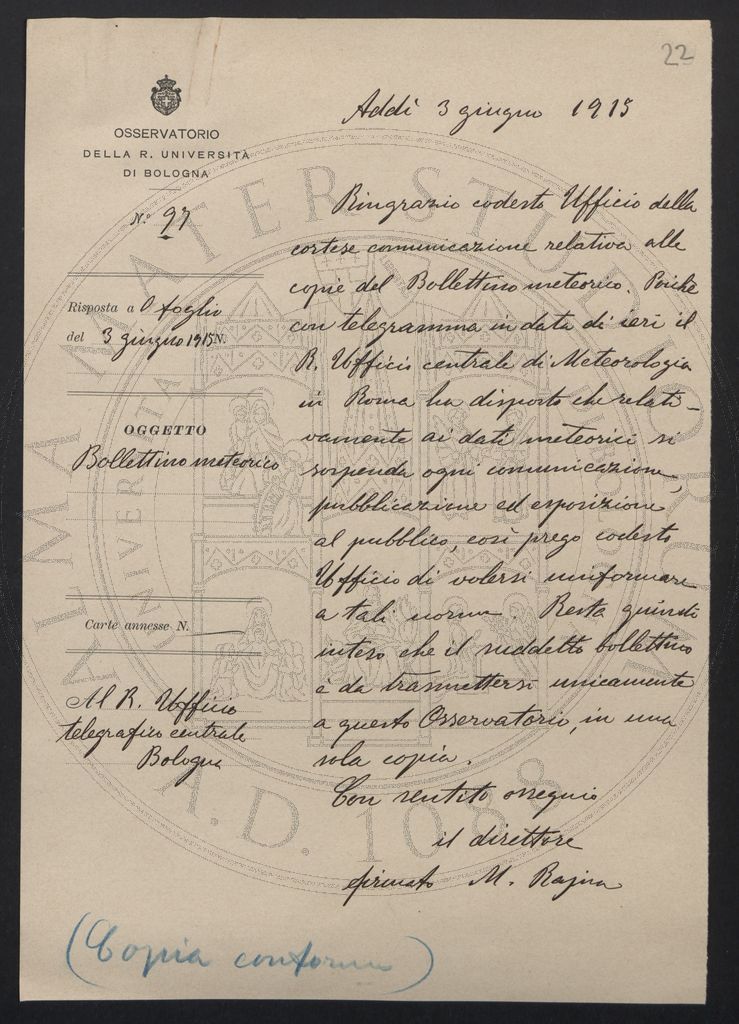 22
OSSERVATORIO
DELLA R. UNIVERSITÀ
DI BOLOGNA
N.º 97
Risposta a l foglio
del 3 giugno 1915 N.
OGGETTO
Bollettino meteorico
Carte annesse N.
Al R. Ufficio
telegrafico centrale
Bologna
Addì 3 giugno 1915
Ringrazio codesto Ufficio della
cortese comunicazione relativa alle
copie del Bollettino meteorico. Poichè
con telegramma in data di ieri il
R. Ufficio centrale di Meteorologia
in Roma ha disposto che relati-
vamente ai dati meteorici si
sospenda ogni comunicazione,
pubblicazione ed esposizione
al pubblico, così prego codesto
Ufficio di volersi uniformare
a tali norme. Resta quindi
inteso che il suddetto bollettino
è da trasmettersi unicamente
a questo Osservatorio, in una
sola copia.
Con sentito ossequio
il direttore
firmato M. Rajna
(Copia conforme)
ALMA MATER STUDIORUM
A.D. 1088